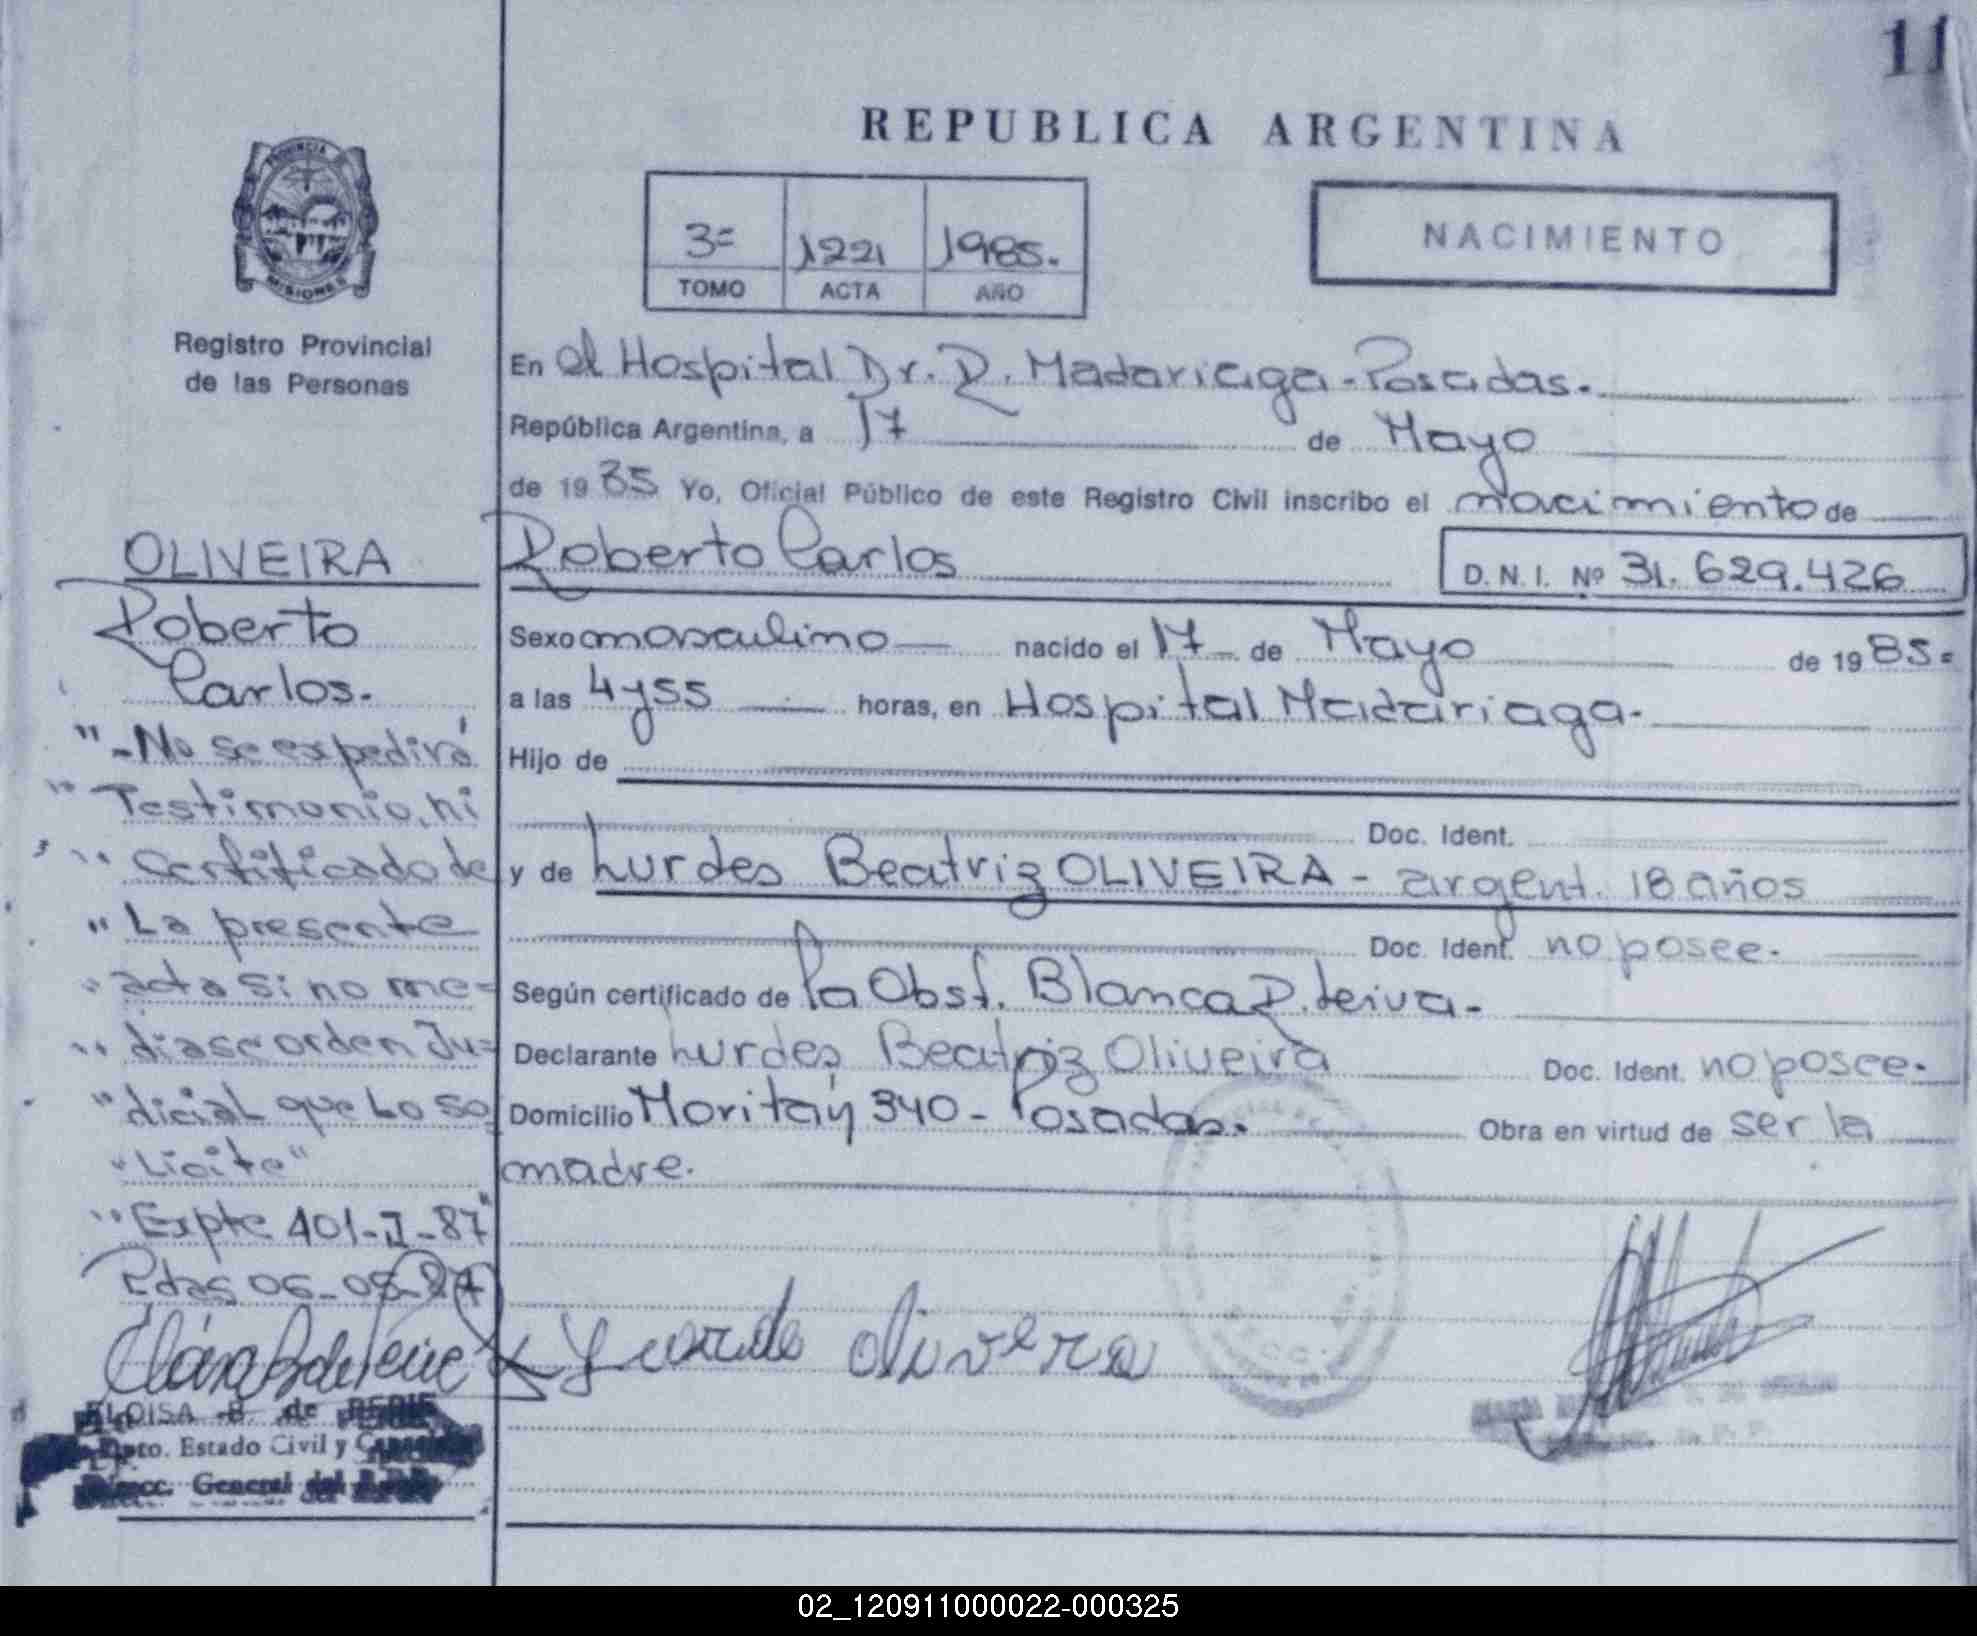 11
REPUBLICA ARGENTINA
PROVINCIA
MISIONES
Registro Provincial
de las Personas
3º 1221 1985.
TOMO ACTA AÑO
NACIMIENTO
En el Hospital Dr. R. Madariaga - Posadas.
República Argentina, a 17 de Mayo
de 1985 Yo, Oficial Público de este Registro Civil inscribo el nacimiento de
Roberto Carlos
D. N. I. Nº 31.629.426
Sexo masculino nacido el 17 de Mayo de 1985=
a las 4 y 55 horas, en Hospital Madariaga.
Hijo de
Doc. Ident.
y de Lurdes Beatriz OLIVEIRA - argent. 18 años
Doc. Ident. no posee.
Según certificado de la Obst. Blanca R. Leiva.
Declarante Lurdes Beatriz Oliveira Doc. Ident. no posee.
Domicilio Posadas. Obra en virtud de ser la
madre.
OLIVEIRA
Roberto
Carlos.
"-No se expedirá
" Testimonio, ni
" Certificado de
" La presente
" acta si no me=
" diase orden Ju=
" dicial que Lo so
" Licite"
" Expte 401-I-87"
Pdas 06-05-87
olivera
ELOISA B. de
Dpto. Estado Civil y
Direcc. General del
02_120911000022-000325